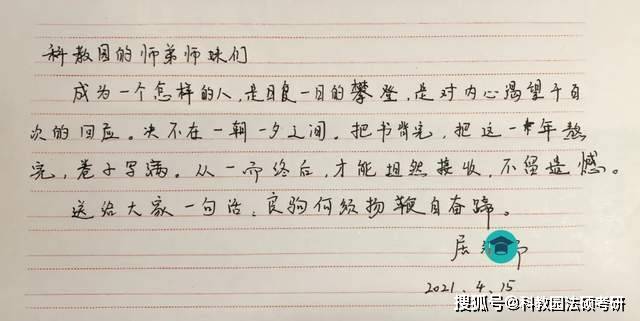 科教园的师弟师妹们
成为一个怎样的人，是日复一日的攀登，是对内心渴望千百
次的回应。决不在一朝一夕之间。把书背完，把这一年熬
完，卷子写满。从一而终后，才能坦然接收，不留遗憾。
送给大家一句话：良驹何须扬鞭自奋蹄。
屈
2021.4.15
搜狐号@科教园法硕考研